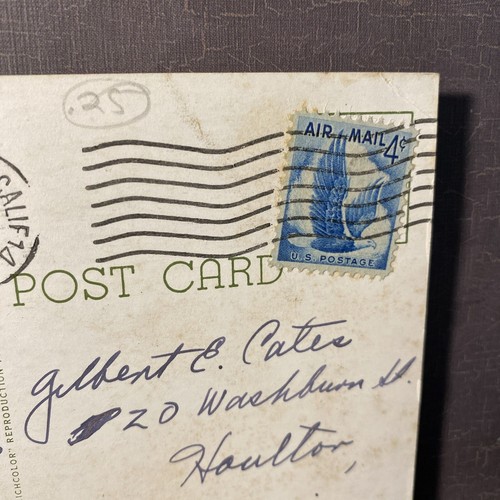 .25
AIR MAIL 4¢
U.S. POSTAGE
CALIF
POST CARD
Gilbert E. Cates
20 Washburn St.
Houlton,
RICHCOLOR" REPRODUCTION